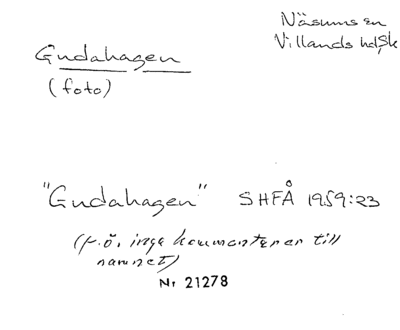 Näsums sn
Villands hd, Sk
Gudahagen
(foto)
"Gudahagen" SHFÅ 1959:23
(f.ö. inga kommentarer till
namnet)
Nr 21278